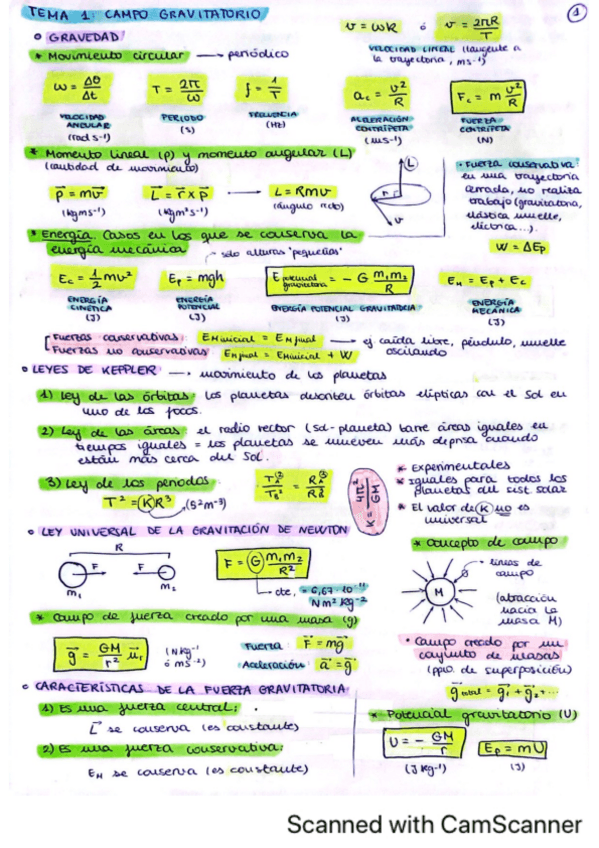 TEMA 1: CAMPO GRAVITATORIO
1
GRAVEDAD
* Movimiento circular → periódico
v = ωR ó v = 2πR/T
VELOCIDAD LINEAL (tangente a la trayectoria, ms⁻¹)
ω = Δθ/Δt
T = 2π/ω
f = 1/T
a_c = v²/R
F_c = m v²/R
VELOCIDAD ANGULAR (rad s⁻¹)
PERIODO (s)
FRECUENCIA (Hz)
ACELERACIÓN CENTRÍPETA (ms⁻¹)
FUERZA CENTRÍPETA (N)
* Momento lineal (p) y momento angular (L)
(cantidad de movimiento)
p = mv
L = r x p → L = Rmv
(kgms⁻¹)
(kgm²s⁻¹)
(ángulo recto)
L
r
v
• Fuerza conservativa:
en una trayectoria
cerrada, no realiza
trabajo (gravitatoria,
elástica muelle,
eléctrica...).
W = ΔEp
* Energía. Casos en los que se conserva la
energía mecánica
sólo alturas "pequeñas"
Ec = 1/2 mv²
Ep = mgh
E potencial gravitatoria = - G m₁m₂/R
E_M = Ep + Ec
ENERGÍA CINÉTICA (J)
ENERGÍA POTENCIAL (J)
ENERGÍA POTENCIAL GRAVITATORIA (J)
ENERGÍA MECÁNICA (J)
Fuerzas conservativas: EM inicial = EM final → ej caída libre, péndulo, muelle
Fuerzas no conservativas EM final = EM inicial + W
oscilando
LEYES DE KEPPLER → movimiento de los planetas
1) Ley de las órbitas: los planetas describen órbitas elípticas con el Sol en
uno de los focos.
2) Ley de las áreas: el radio rector (sol-planeta) barre áreas iguales en
tiempos iguales = los planetas se mueven más deprisa cuando
están más cerca del Sol.
3) Ley de los periodos
T² = K R³ (s²m⁻³)
T_A²/T_B² = R_A³/R_B³
K = 4π²/GM
* Experimentales
* Iguales para todos los
planetas del sist solar
* El valor de K no es
universal
LEY UNIVERSAL DE LA GRAVITACIÓN DE NEWTON
R
F F
m₁ m₂
F = G m₁m₂/R²
cte, = 6,67·10⁻¹¹
Nm² kg⁻²
* Concepto de campo
M
líneas de
campo
(atracción
hacia la
masa M)
* Campo de fuerza creado por una masa (g)
g = GM/r² u_r
(N kg⁻¹
ó ms⁻²)
Fuerza: F = mg
Aceleración: a = g
• Campo creado por un
conjunto de masas
(ppio. de superposición)
g total = g₁ + g₂ + ...
CARACTERÍSTICAS DE LA FUERZA GRAVITATORIA
1) Es una fuerza central:
L se conserva (es constante)
2) Es una fuerza conservativa:
E_M se conserva (es constante)
* Potencial gravitatorio (U)
U = - GM/r
Ep = mU
(J kg⁻¹)
(J)
Scanned with CamScanner